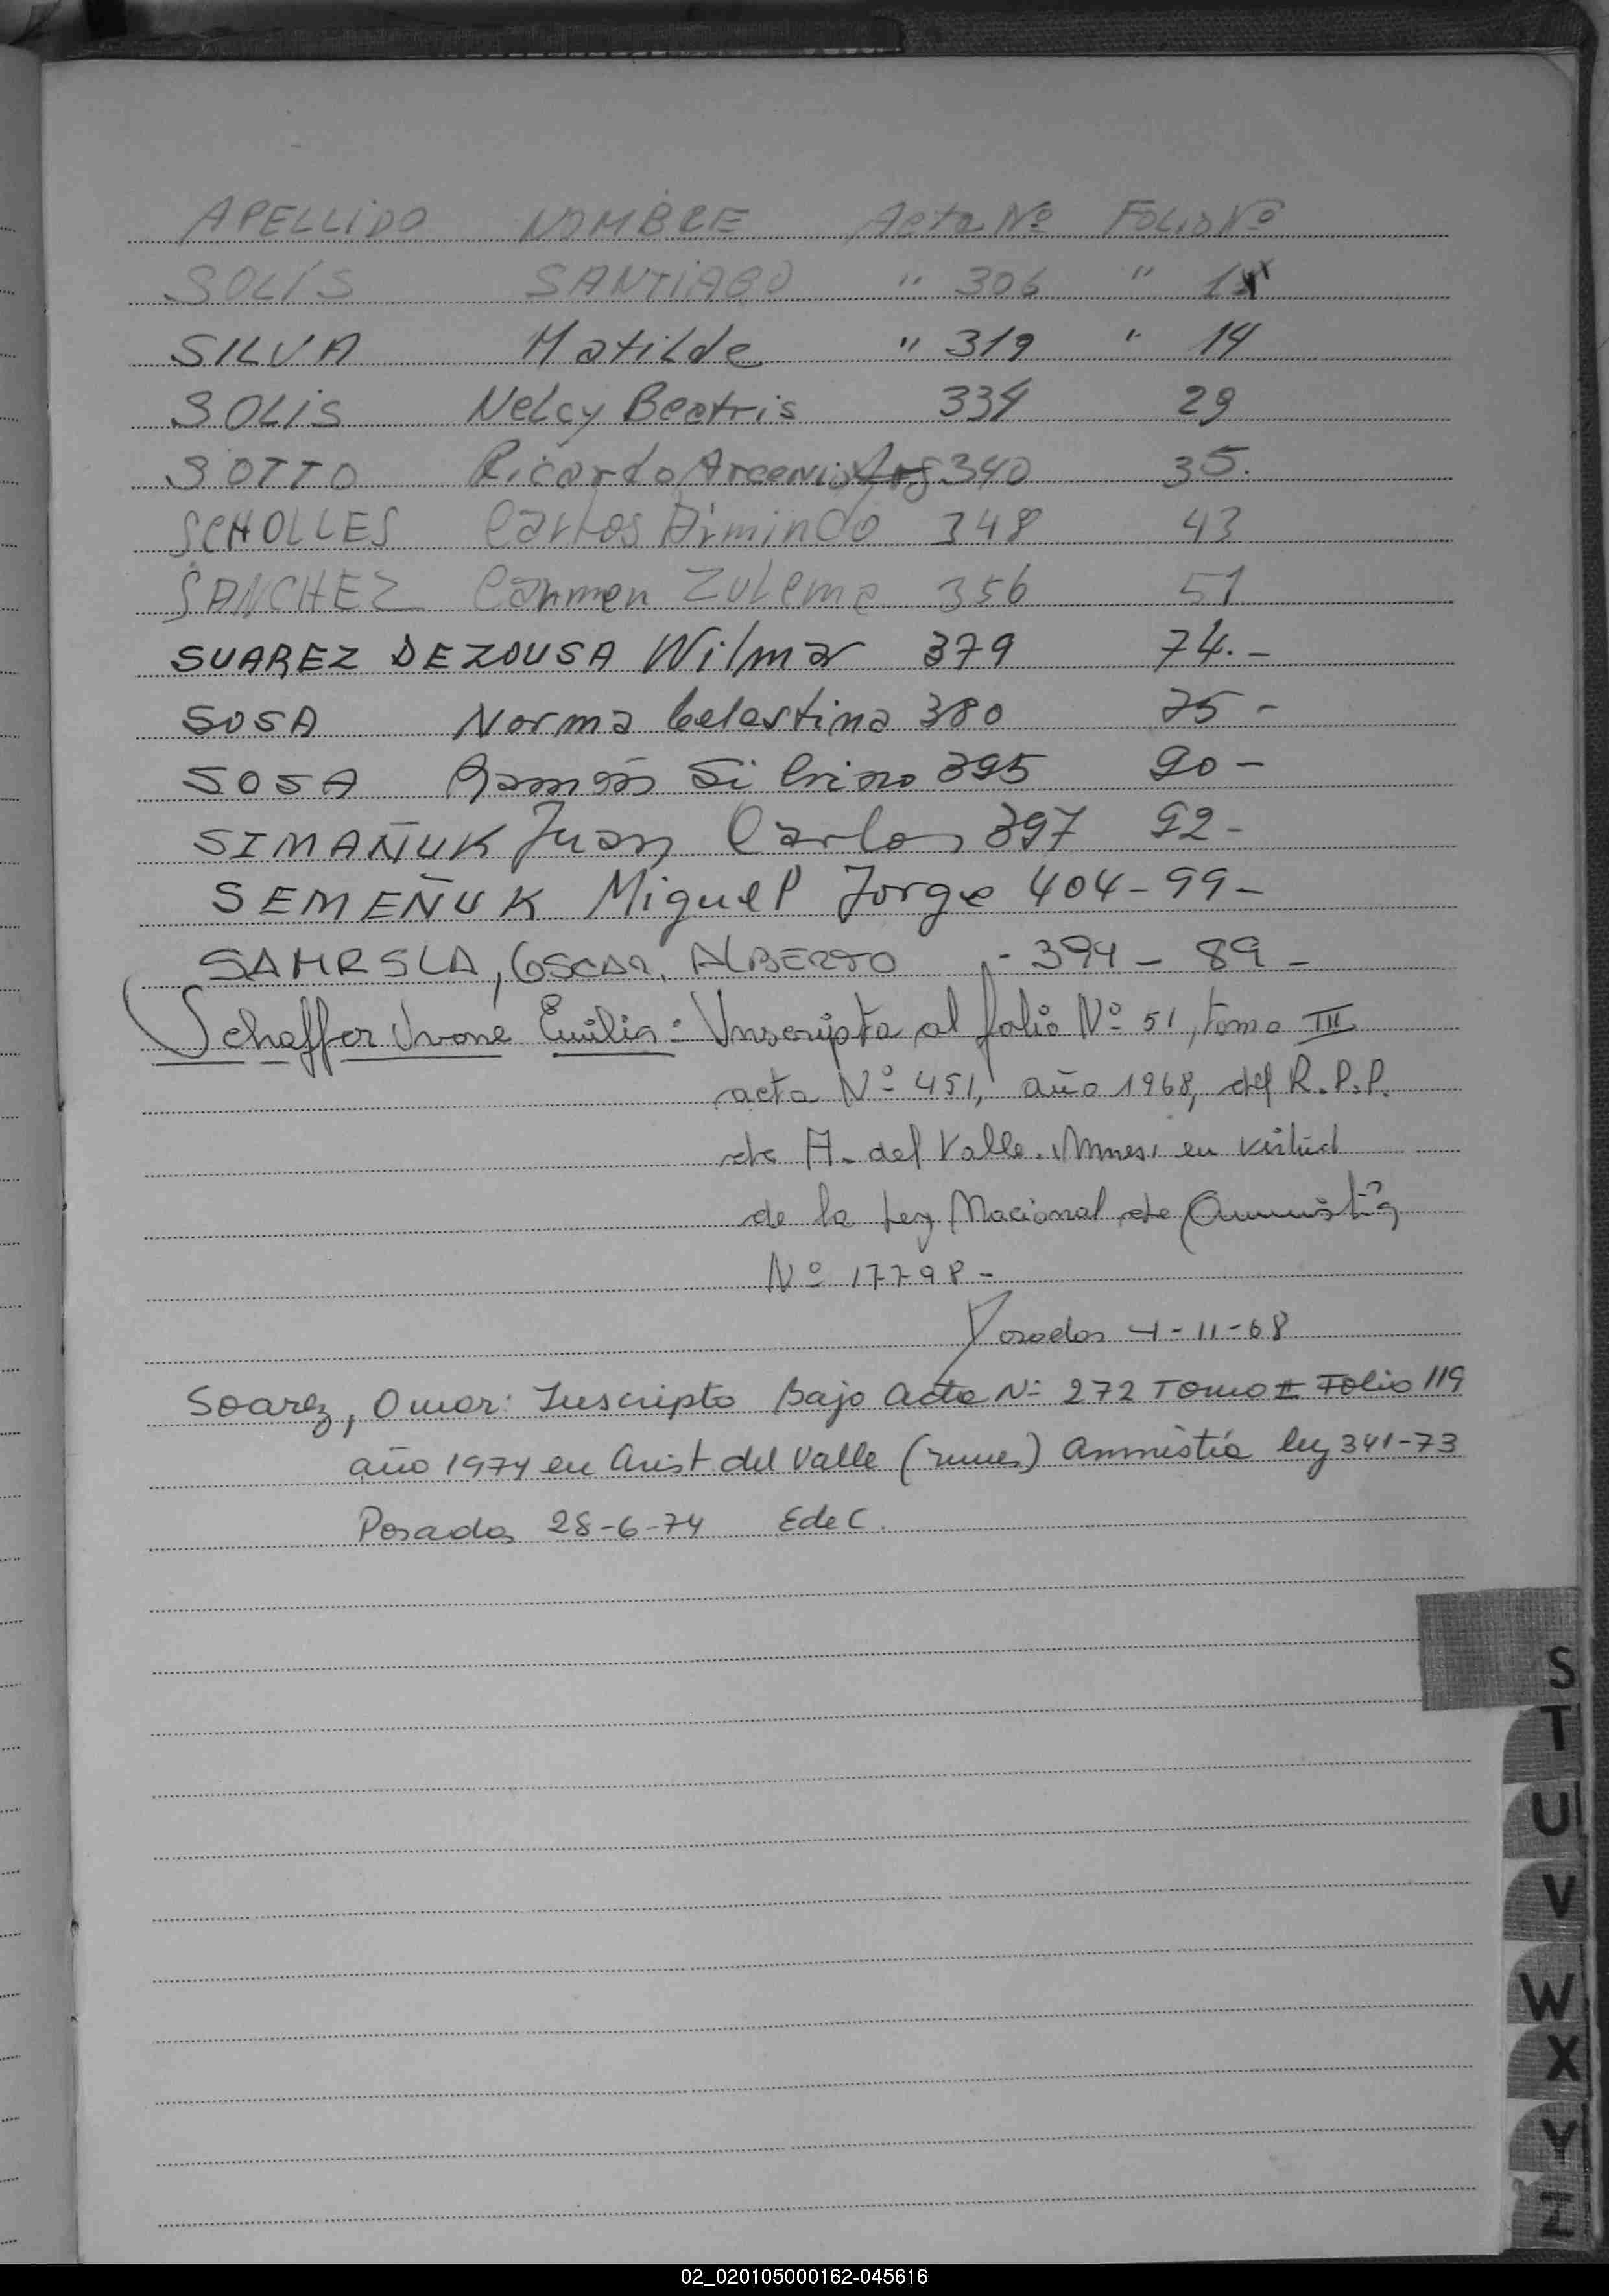 APELLIDO NOMBRE Acta Nº FOLIO Nº
SOLÍS SANTIAGO " 306 " 1
SILVA Matilde " 319 " 14
SOLIS Nelcy Beatris 334 29
SOTTO Ricardo Arcenio 340 35.
SCHOLLES Carlos Armindo 348 43
SANCHEZ Carmen Zulema 356 51
SUAREZ DEZOUSA Wilmar 379 74.-
SOSA Norma Celestina 380 75-
SOSA Ramón Silvino 395 90-
SIMAÑUK Juan Carlos 397 92-
SEMEÑUK Miguel Jorge 404-99-
SAMRSLA, OSCAR, ALBERTO - 394 - 89 -
Schaffer Ivone Emilia: Inscripta al folio Nº 51, tomo III
acta Nº 451, año 1968, del R.P.P.
de A. del Valle. Mnes, en virtud
de la Ley Nacional de Amnistía
Nº 17798-
Posadas 4-11-68
Soarez, Omar: Inscripto Bajo acta Nº 272 Tomo II Folio 119
año 1974 en Arist. del Valle (mnes) Amnistía ley 341-73
Posadas 28-6-74 EdeC.
S
T
U
V
W
X
Y
Z
02_020105000162-045616